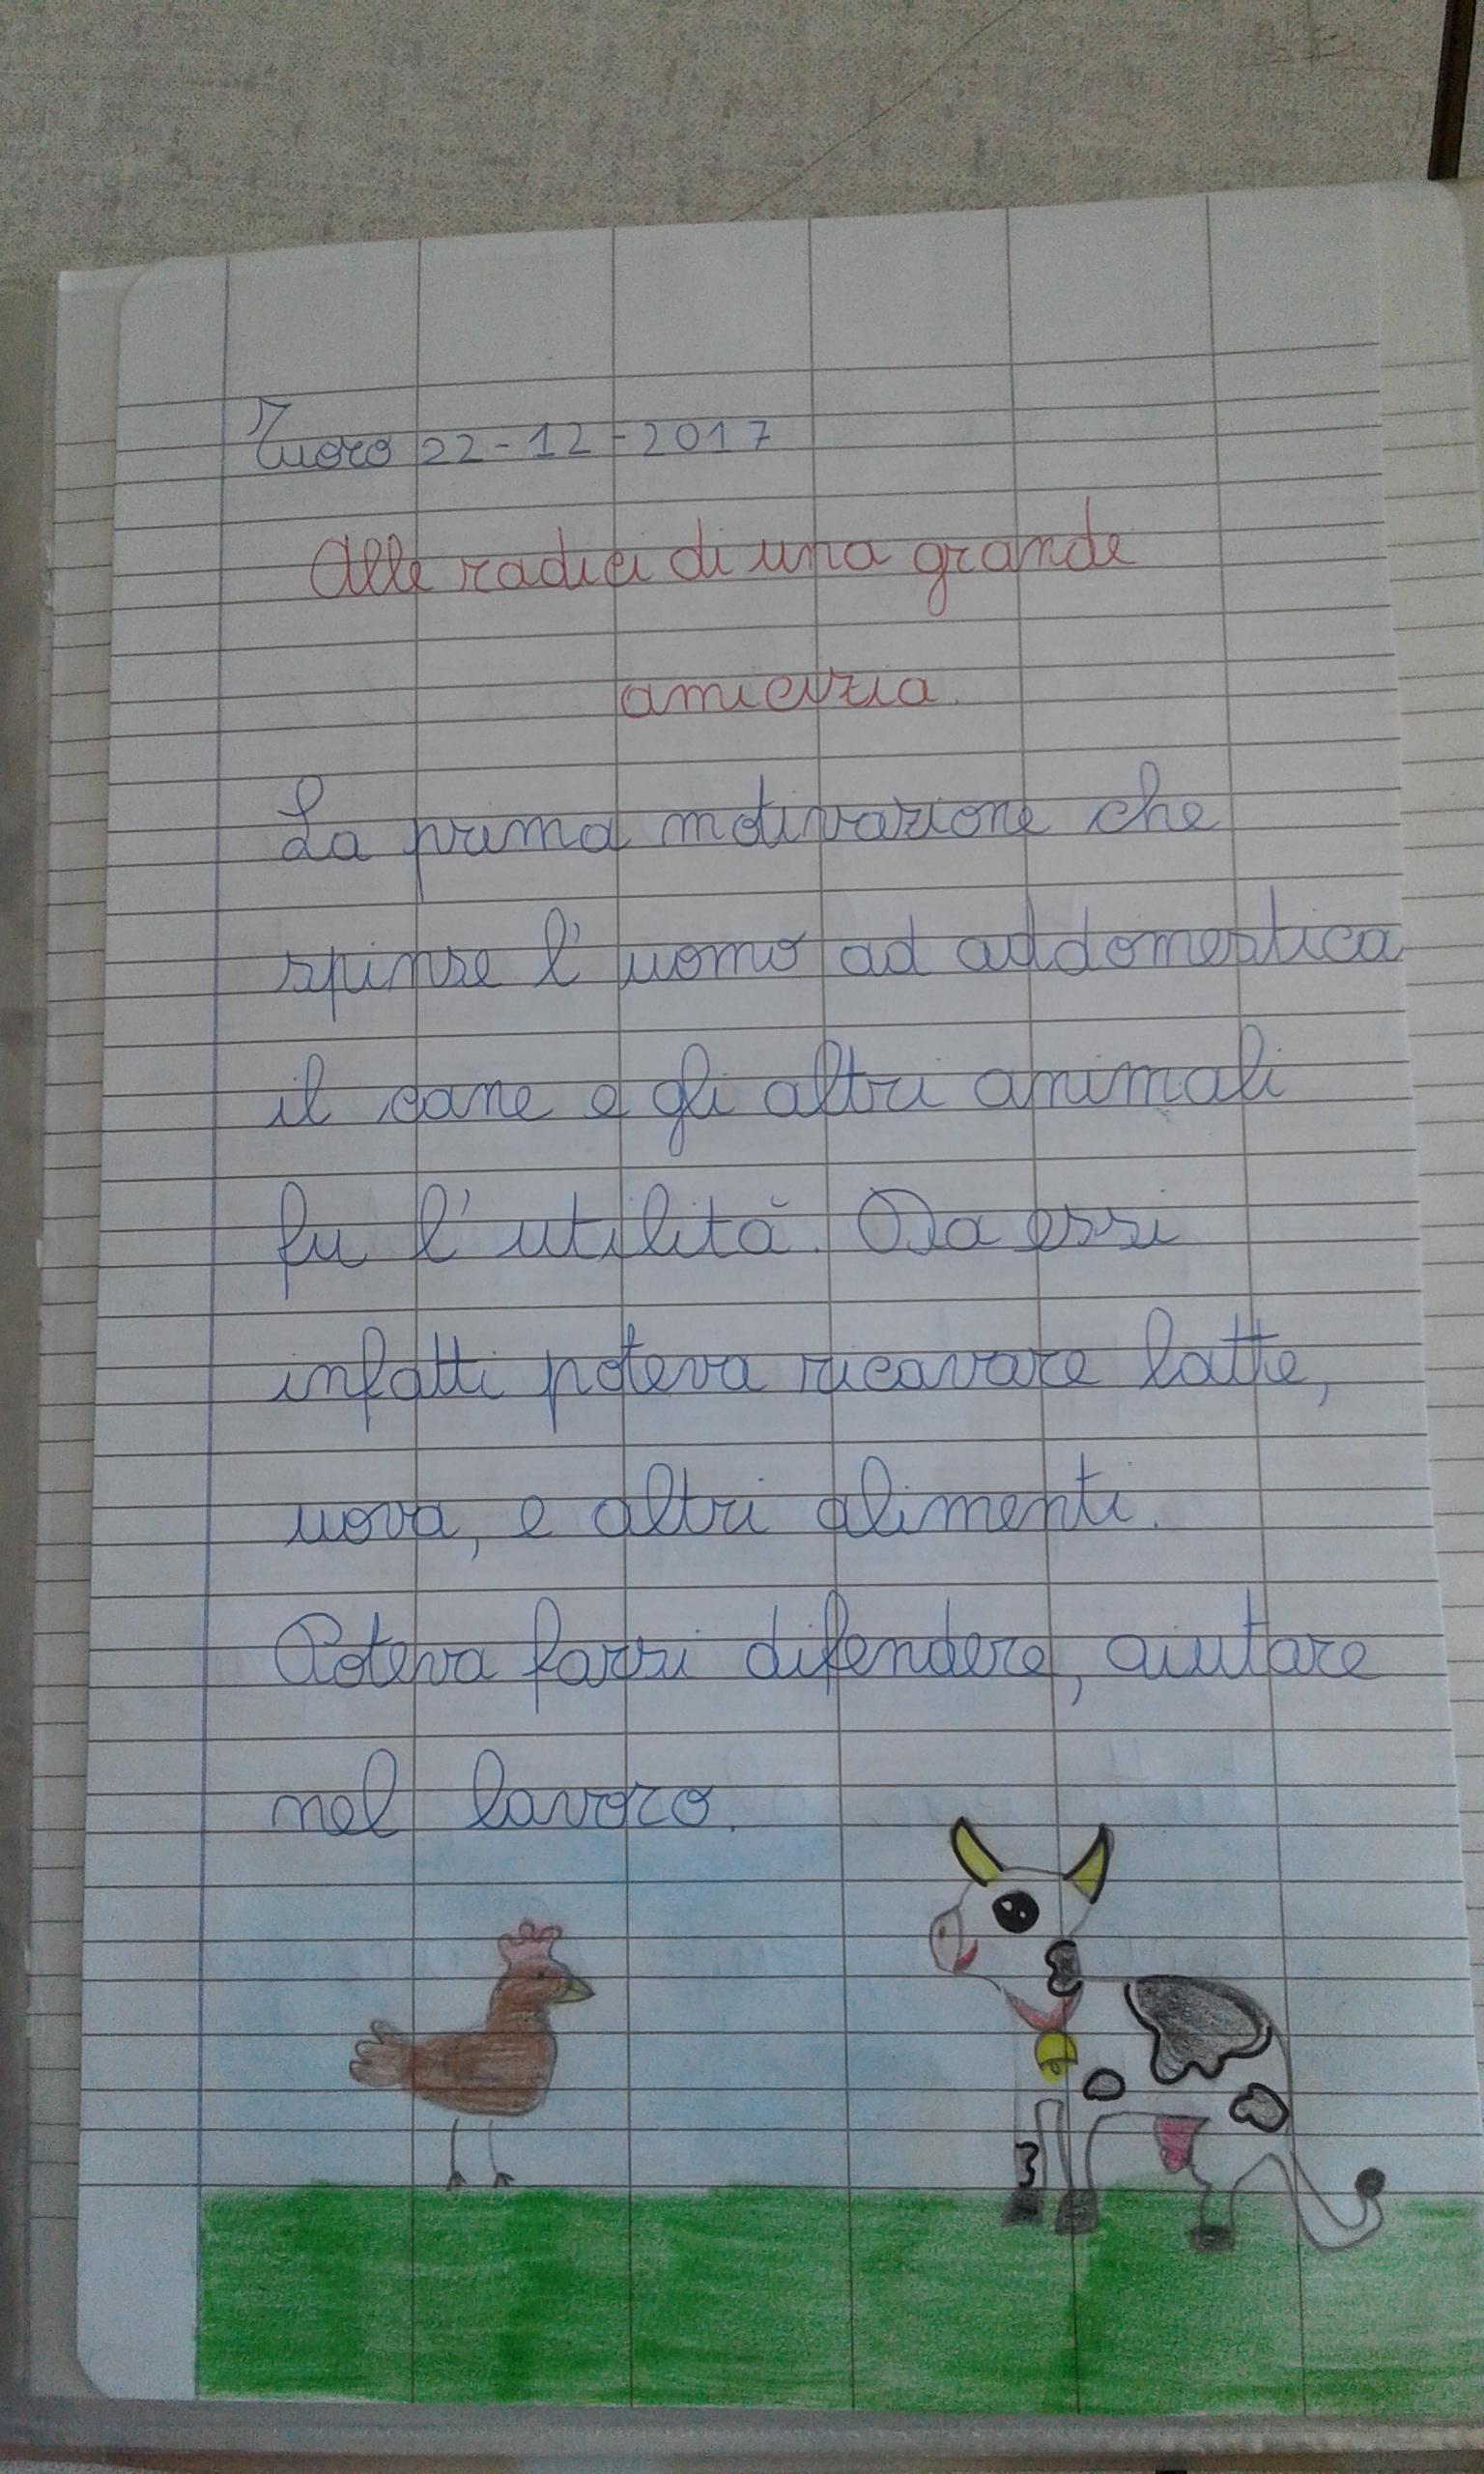 Tuoro 22-12-2017
Alle radici di una grande
amicizia.
La prima motivazione che
spinse l'uomo ad addomestica
il cane e gli altri animali
fu l'utilità. Da essi
infatti poteva ricavare latte,
uova, e altri alimenti.
Poteva farsi difendere, aiutare
nel lavoro.